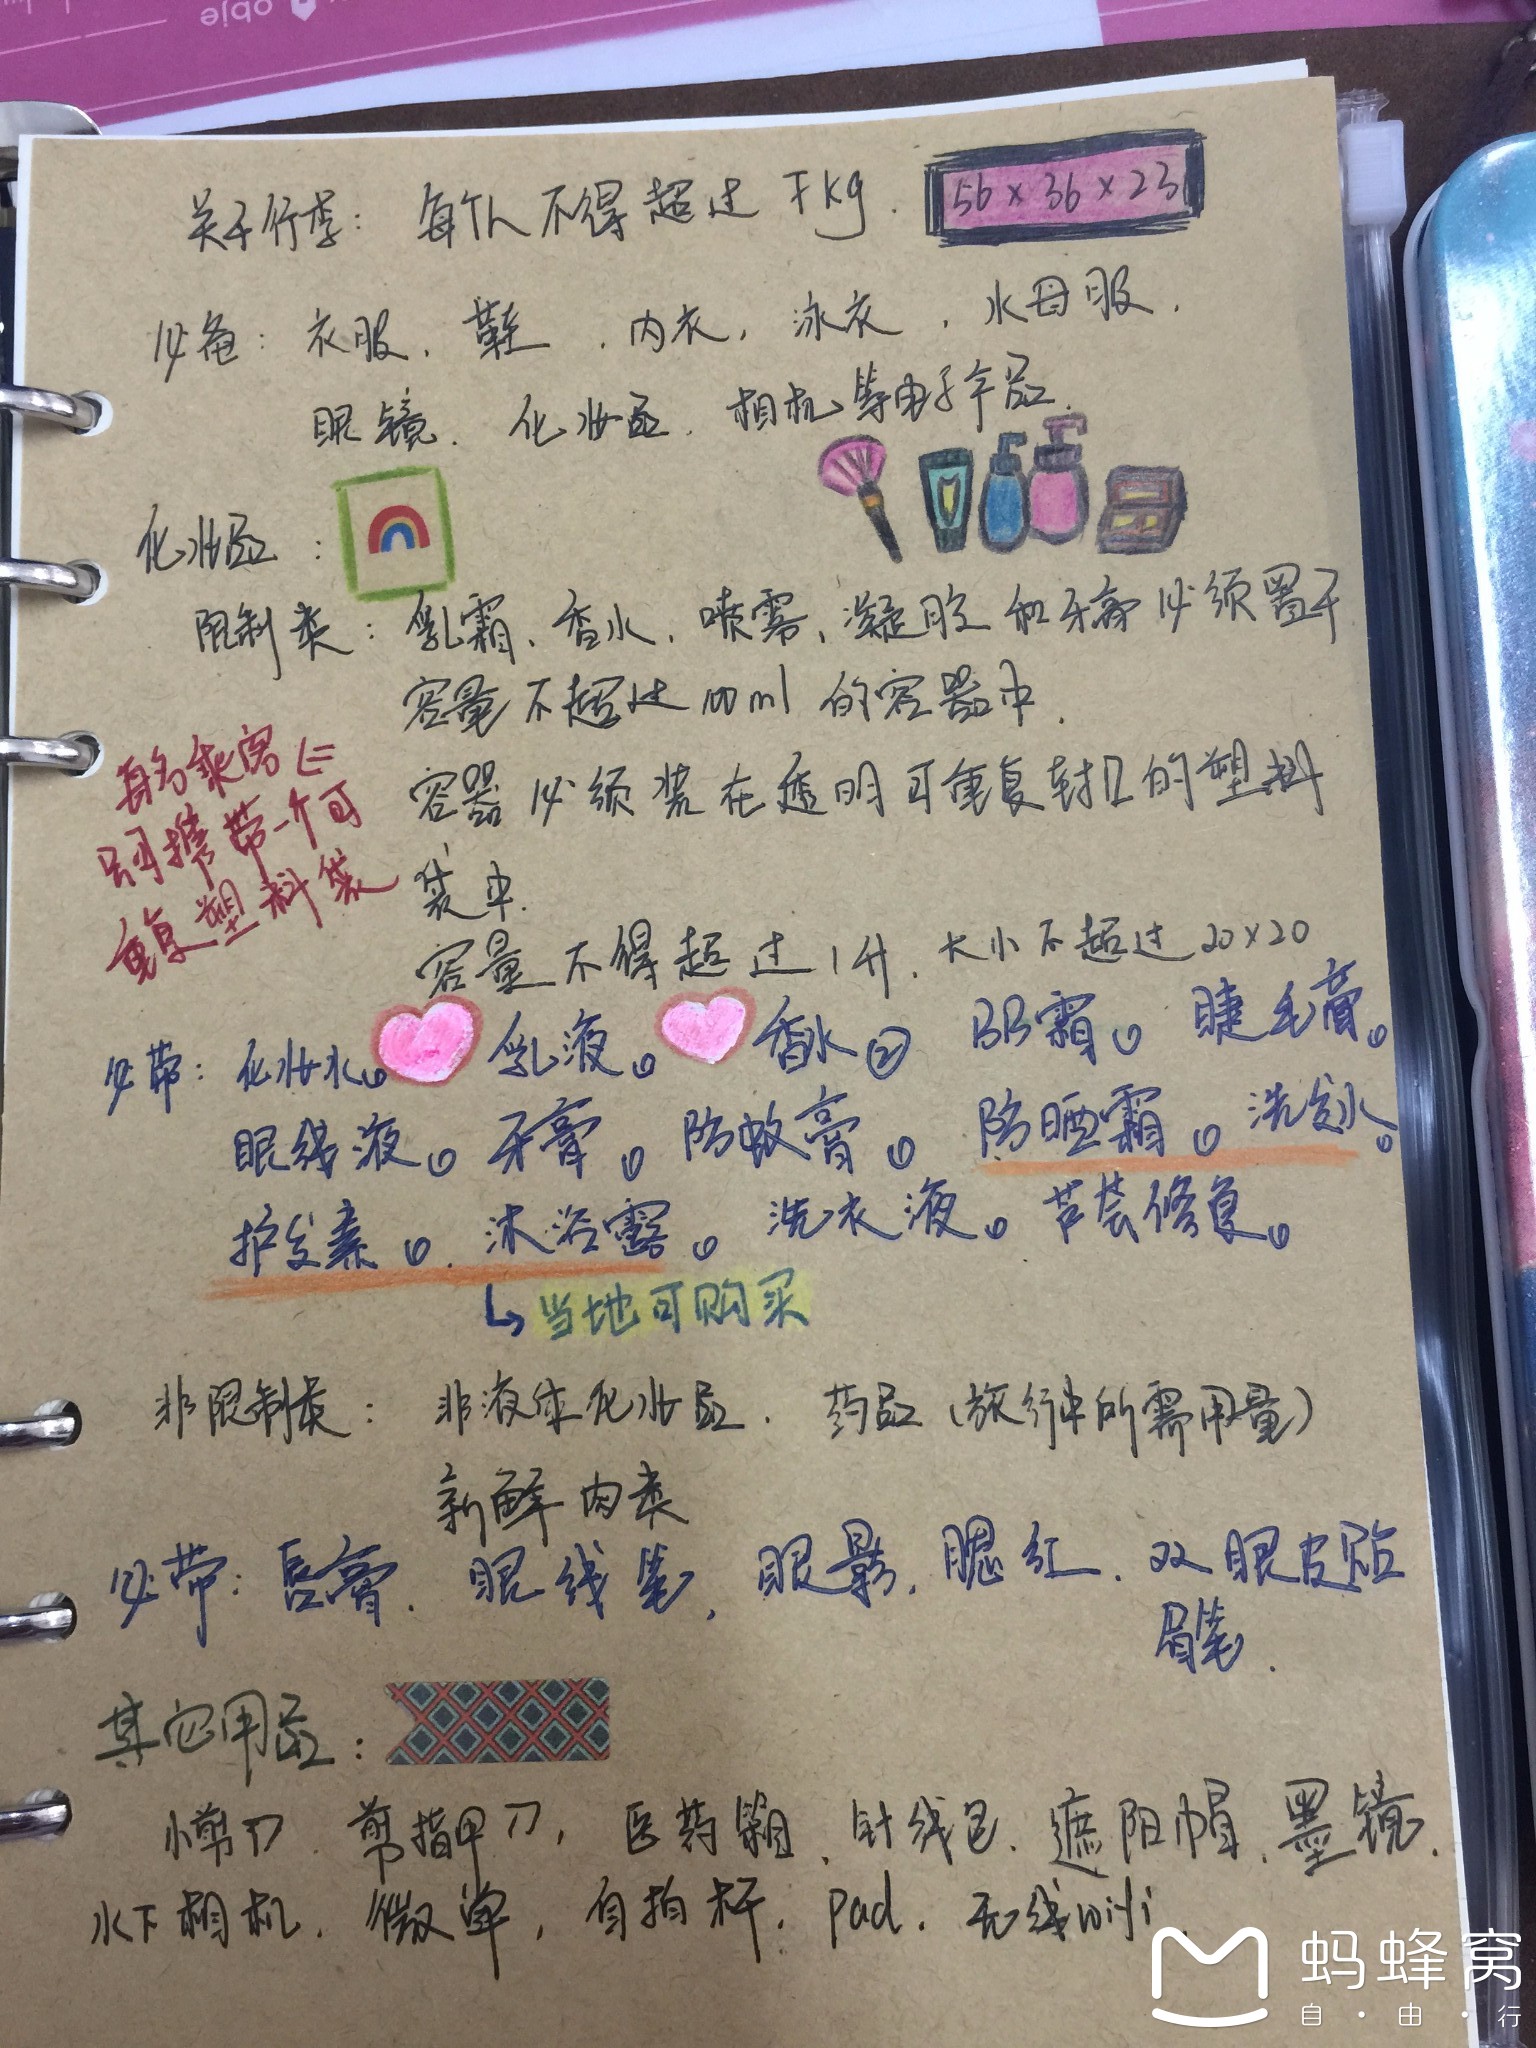 obje
关于行李：每个人不得超过7kg.
56×36×23
必备：衣服、鞋、内衣，泳衣，水母服，
眼镜、化妆品、相机等电子产品.
化妆品：
限制类：乳霜、香水、喷雾、凝胶和牙膏必须置于
容量不超过100ml的容器中.
容器必须装在透明可重复封口的塑料
袋中.
容量不得超过1升、大小不超过20×20
每名乘客
只可携带一个可
重复塑料袋
必带：化妆水。乳液。香水② BB霜。睫毛膏。
眼线液。牙膏。防蚊膏。防晒霜。洗发水。
护发素。沐浴露。洗衣液。芦荟修复。
当地可购买
非限制类：非液体化妆品、药品（旅行中所需用量）
新鲜肉类
必带：唇膏、眼线笔，眼影，腮红、双眼皮贴
眉笔.
其它用品：
小剪刀、剪指甲刀，医药箱、针线包、遮阳帽、墨镜、
水下相机，微单，自拍杆，pad，无线wifi
蚂蜂窝
自·由·行